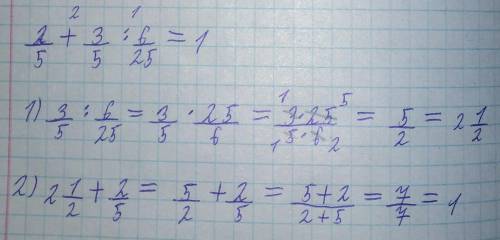 2 1
2/5 + 3/5 : 6/25 = 1
1) 3/5 : 6/25 = 3/5 · 25/6 = 3·25/5·6 = 5/2 = 2 1/2
2) 2 1/2 + 2/5 = 5/2 + 2/5 = 5+2/2+5 = 7/7 = 1